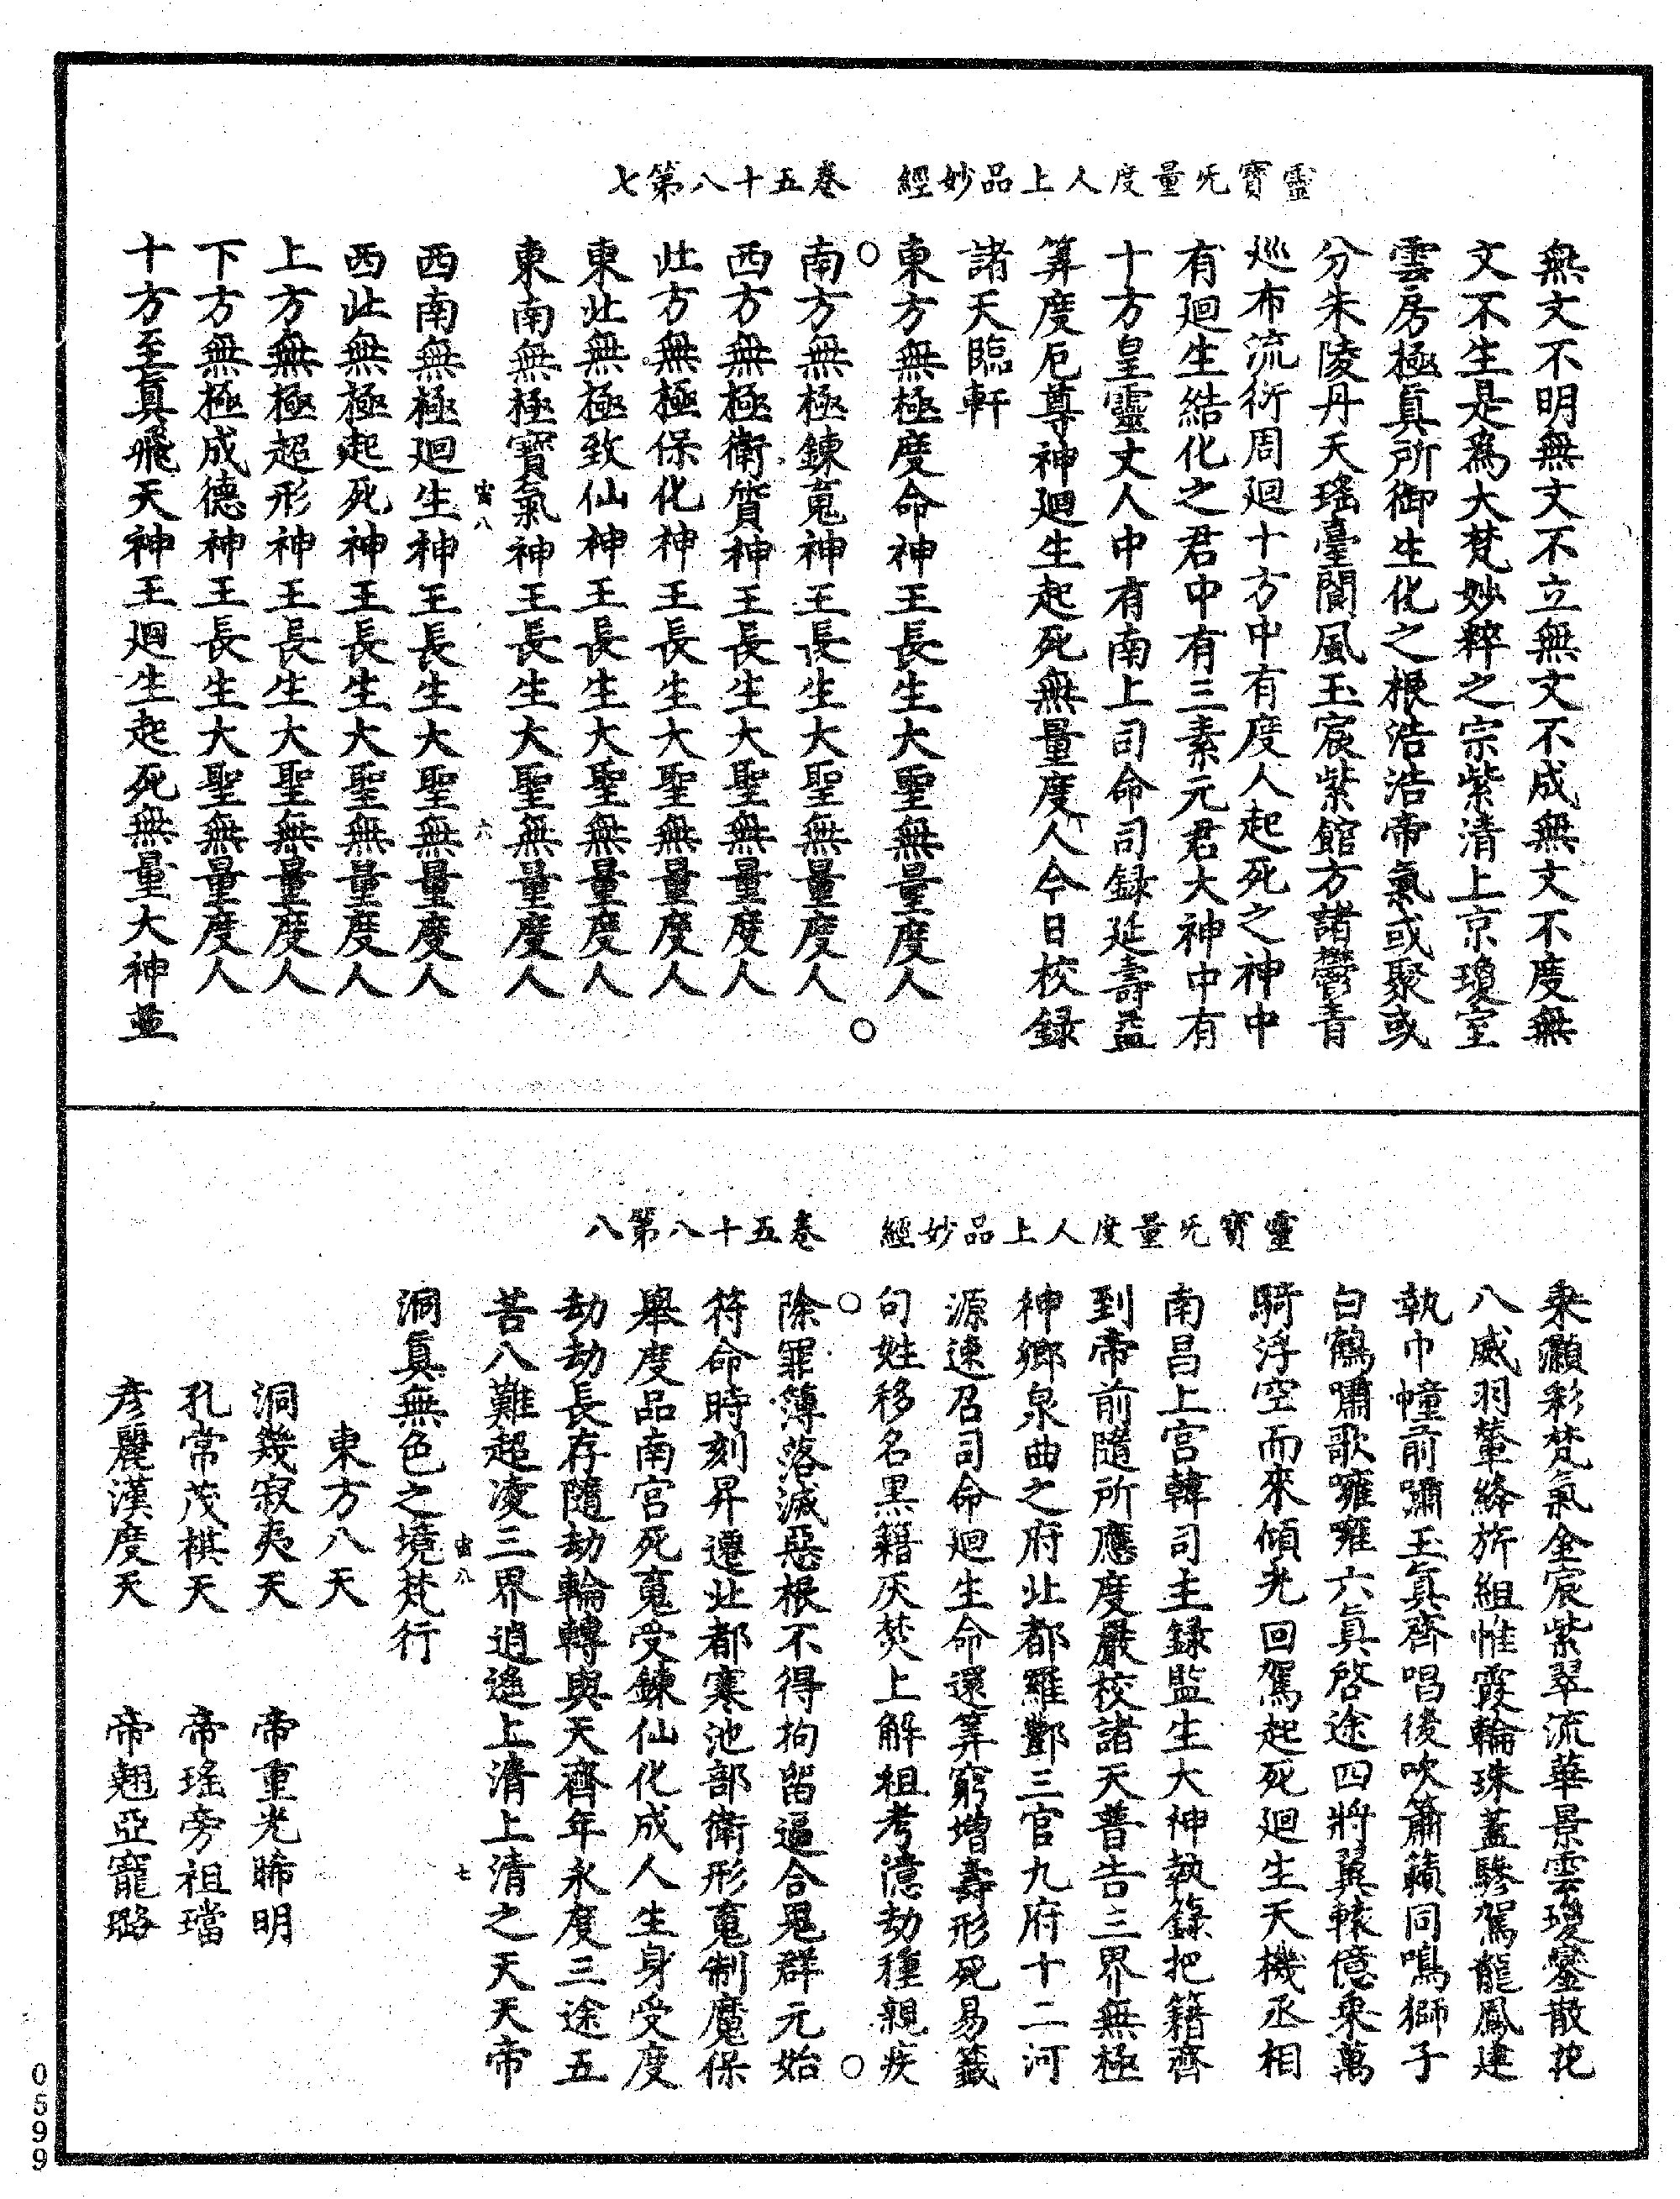 靈寶旡量度人上品妙經　卷五十八第七
無文不明無文不立無文不成無文不度無
文不生是爲大梵妙粹之宗紫清上京瓊室
雲房極眞所御生化之根浩浩帝氣或聚或
分朱陵丹天瑤臺閬風玉宸紫館方諸鬱青
廵布流衍周迴十方中有度人起死之神中
有迴生結化之君中有三素元君大神中有
十方皇靈丈人中有南上司命司録延壽益
筭度厄尊神迴生起死無量度人今日校録
諸天臨軒
東方無極度命神王長生大聖無量度人
南方無極鍊䰟神王長生大聖無量度人
西方無極衛質神王長生大聖無量度人
北方無極保化神王長生大聖無量度人
東北無極致仙神王長生大聖無量度人
東南無極寶氣神王長生大聖無量度人
宙八　六
西南無極迴生神王長生大聖無量度人
西北無極起死神王長生大聖無量度人
上方無極超形神王長生大聖無量度人
下方無極成德神王長生大聖無量度人
十方至眞飛天神王迴生起死無量大神並
靈寶旡量度人上品妙經　卷五十八第八
乘灝彩梵氣金宸紫翠流華景雲瓊鑾散花
八威羽輦絳旂組帷霞輪珠蓋驂駕龍鳳建
執巾幢前嘯玉眞齊唱後吹簫籟同鳴獅子
白鶴嘯歌嗈嗈六眞啓途四將翼轅億乘萬
騎浮空而來傾光回駕起死迴生天機丞相
南昌上宮韓司主録監生大神執籙把籍齊
到帝前隨所應度嚴校諸天普告三界無極
神鄉泉曲之府北都羅酆三官九府十二河
源速召司命迴生命還筭窮增壽形死易籤
句姓移名黒籍灰焚上解祖考億劫種親疾
除罪簿落滅惡根不得拘留逼合鬼群元始
符命時刻昇遷北都寒池部衛形䰟制魔保
舉度品南宮死䰟受鍊仙化成人生身受度
劫劫長存隨劫輪轉與天齊年永度三途五
苦八難超凌三界逍遙上清上清之天天帝
宙八　七
洞眞無色之境梵行
東方八天
洞幾寂夷天　帝重光晞明
孔常茂棋天　帝瑤旁祖璫
彦麗漢度天　帝翹亞寵璐
0599